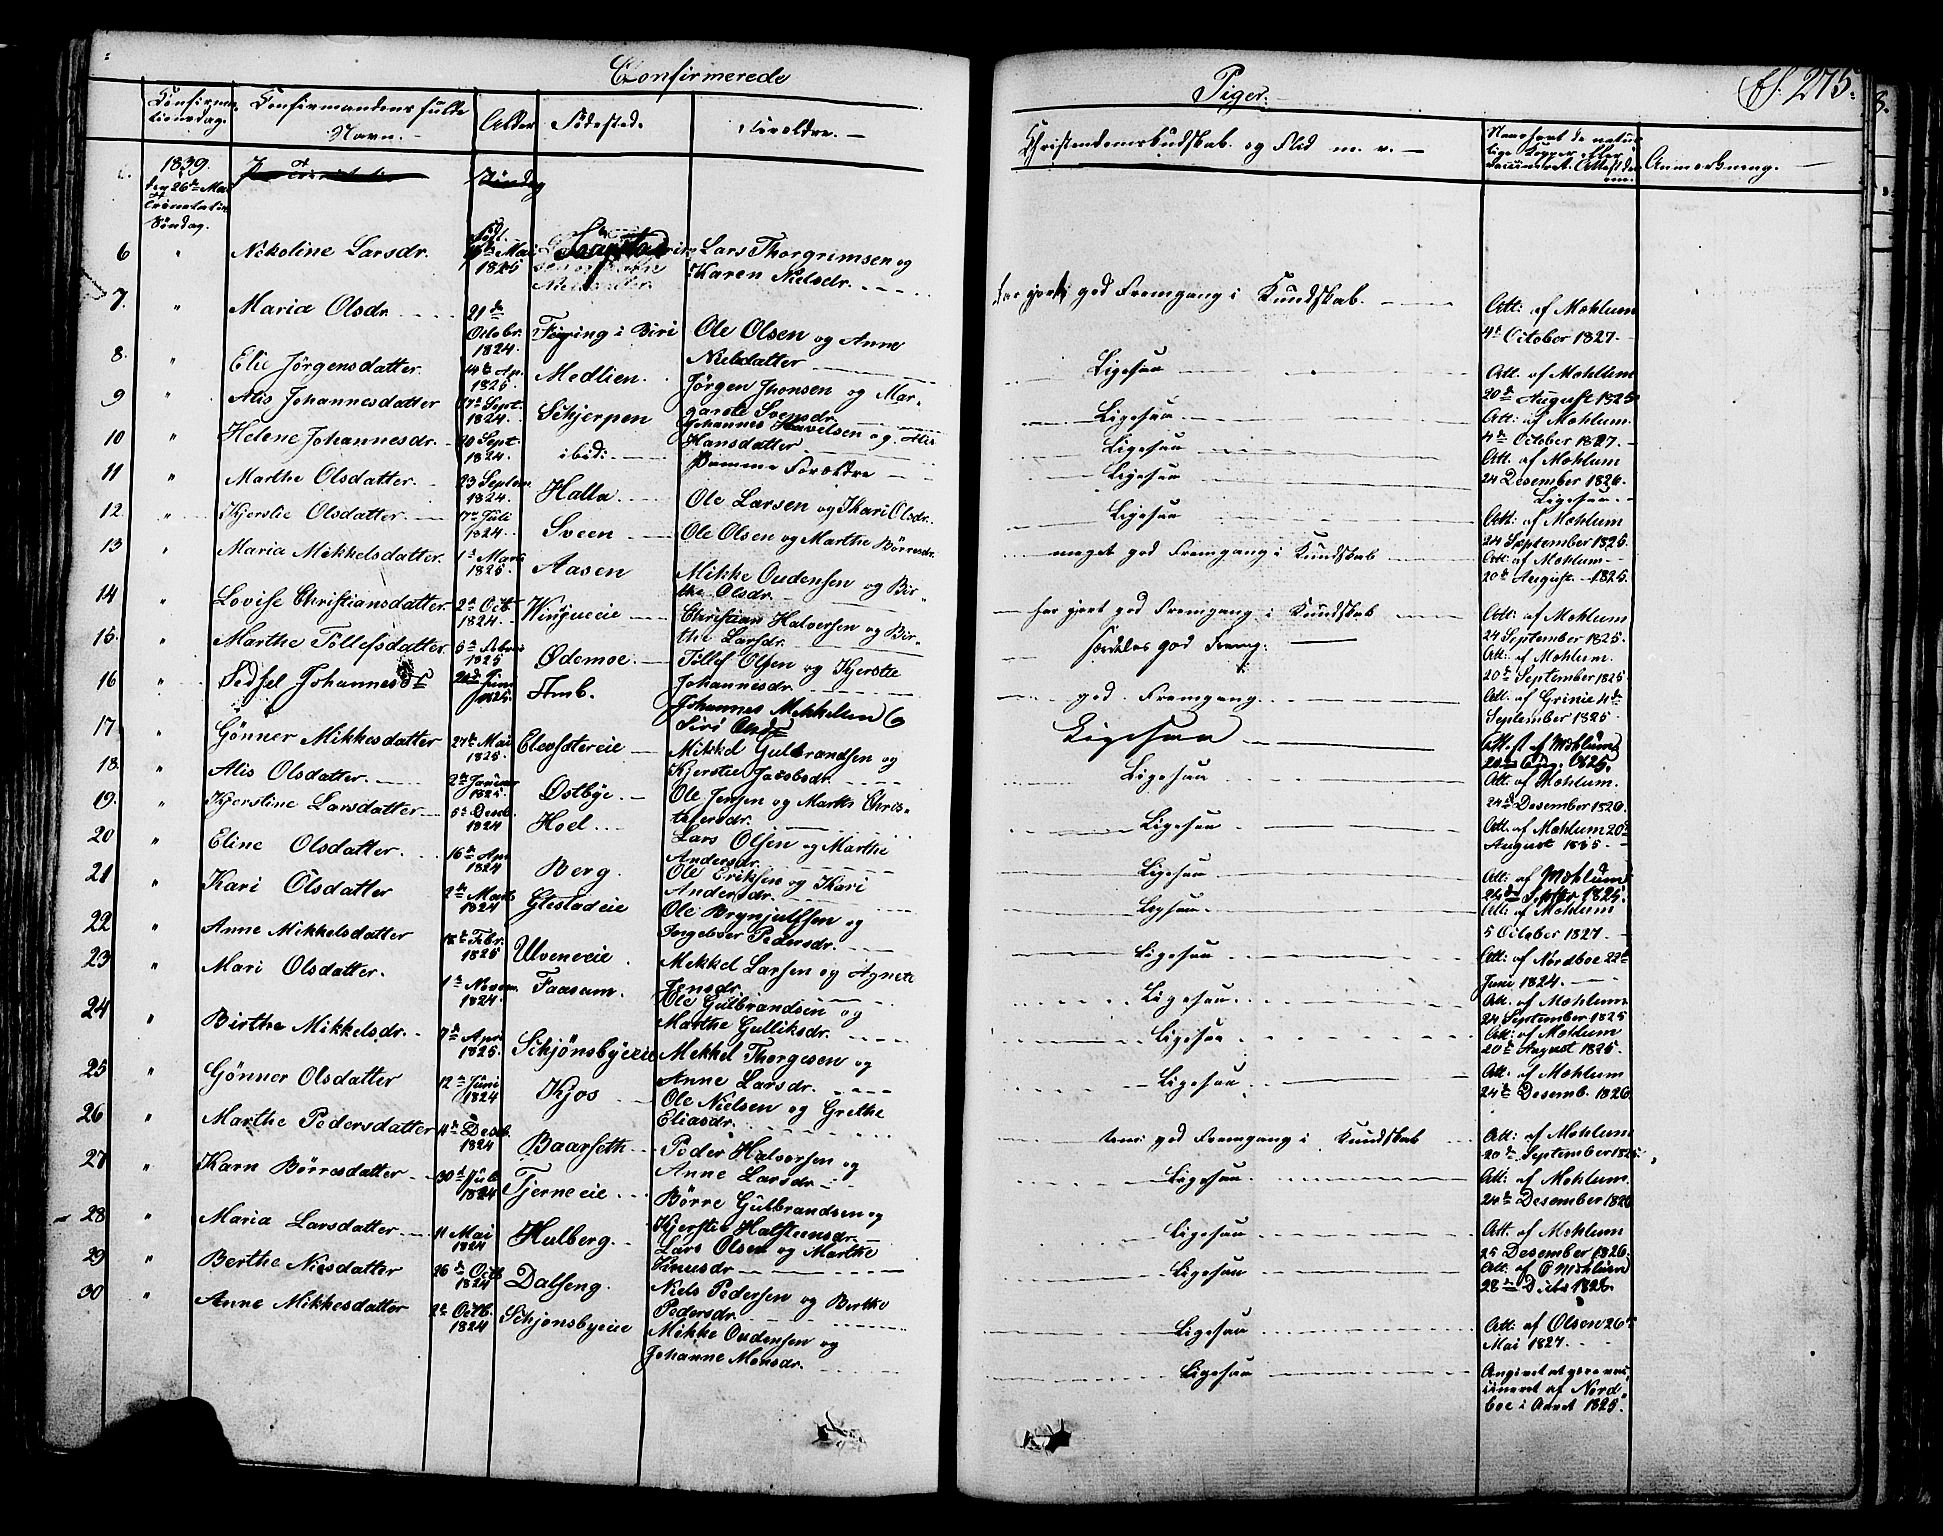 Confirmerede
Piger.
275.
Confirmationsdag.
Confirmandens fulde Navn.
Alder
Födested.
Forældre.
Christendomskundskab og Flid m. v.
Anmærkning.
1839.
den 26de Mai
Trinitatis
Söndag.
6 " Nikoline Larsdr. Mai 1825 Lars Thorgrimsen og
Karen Nielsdr.
har gjort god Fremgang i Kundskab.
Att: af Mæhlum
4de October 1827.
7. " Maria Olsdr. 21de Octobr. 1824. Feiring i Biri Ole Olsen og Anne
Nielsdatter
Ligesaa
Att. af Mæhlum
20de August 1825
8. " Elie Jörgensdatter. 14de Ap. 1825 Medlien. Jörgen Jvonsen og Mar-
garete Svensdr.
Ligesaa
Att: af Mæhlum
4de October 1827.
9 " Alis Johannesdatter 17de Sept. 1824. Schjerpen Johannes Pavelsen og Alis
Hansdatter
Ligesaa
Att. af Mæhlum
24 Desember 1826.
10 " Helene Johannesdr. 10 Sept. 1824. ibid: Samme Forældre
Ligesaa
Ligesaa.
11 " Marthe Olsdatter. 23 Septem. 1824. Halla. Ole Larsen og Kari Olsdr.
Ligesaa
Att: af Mæhlum
24 September 1826.
12. " Kjerstie Olsdatter. 7de Juli 1824. Sveen Ole Olsen og Marthe Börresdr.
meget god Fremgang i Kundskab
Att: af Mæhlum
20de August 1825.
13 " Maria Mikkelsdatter. 1ste Marts 1825. Aasen Mikke Oudensen og Bir-
the Olsdr.
har gjort god Fremgang i Kundskab
Att: af Mæhlum
24 September 1825.
14 " Lovise Christiansdatter. 2de Octb. 1824. Wingueeie Christian Halversen og Bir-
the Larsdr.
særdeles god Fremg:
Att: af Mæhlum.
20de September 1825
15. " Marthe Töllefsdatter. 5te Febr. 1825 Ödemoe. Töllef Olsen og Kjerstie
Johannesdr.
god Fremgang.
Att. af Grinie 4de
September 1825.
16 " Sidsel Johannesdr 24de Juni 1825. Amb. Johannes Mikkelsen og
Siri Olsdr
Ligesaa
Attest af Mæhlum
20de Aug. 1825.
17. " Gönner Mikkesdatter 27de Mai 1825. Elevsætereie Mikkel Gulbrandsen og
Kjerstie Jacobsdr.
Ligesaa
Att. af Mæhlum.
24de Desember 1826.
18. " Alis Olsdatter. 2de Januar 1825. Ostbye. Ole Jensen og Marthe Chris-
tofersdr.
Ligesaa
Att. af Mæhlum 20de
August 1835.
19. " Kjerstine Larsdatter 5te Desb. 1824 Hoel. Lars Olsen og Marthe
Andersdr.
Ligesaa
Att: af Mæhlum
24de Septbr 1825.
20 " Eline Olsdatter. 16de Apr 1824 Berg. Ole Eriksen og Kari
Andersdr.
Ligesaa.
Att: af Mæhlum
5 October 1827.
21 " Kari Olsdatter 2de Marts 1824 Glestadeie Ole Brynjulfsen og
Ingebor Pedersdr.
Ligesaa
Att: af Nordboe 22de
Juni 1824.
22 " Anne Mikkelsdatter 18de Febr. 1825 Ulveneeie. Mekkel Larsen og Agnete
Jensdr.
Ligesaa
Att. af Mæhlum
24 September 1825
23 " Mari Olsdatter. 1ste Novem. 1824. Faasum. Ole Gulbrandsen og
Marthe Gulliksdr.
Ligesaa
Att: af Mæhlum
20de August 1825.
24 " Birthe Mikkelsdr. 7de Apr 1825. Schjönsbyeeie Mekkel Thorgesen og
Anne Larsdr.
Ligesaa
Att: af Mæhlum
24de Desemb. 1826.
25 " Gönner Olsdatter 12te Juni 1824 Kjos Ole Nielsen og Grethe
Eliasdr.
god Fremgang i Kundskab
Att: af Mæhlum
20de September 1825
26 " Marthe Pedersdatter 11te Desb. 1824 Baarseth Peder Halvorsen og
Anne Larsdr.
Ligesaa
Att: af Mæhlum.
24de Desember 1826
27 " Karn Börresdatter 30te Juli 1824 Tjerneeie Börre Gulbrandsen og
Kjerstie Halsteensdr.
Ligesaa
Att. af Mæhlum
25 Desember 1826.
28 " Maria Larsdatter 11 Mai 1824 Hulberg. Lars Olsen og Marthe
Knusdr
Ligesaa
Att. af P Mæhlum
28de Decbr 1826.
29 " Berthe Nisdatter 26de Octb 1824 Dalseng. Niels Pedersen og Berthe
Pedersdr.
Ligesaa
Att: af Olsen 26de
Mai 1827.
30 " Anne Mikkesdatter 2de Octb. 1824 Schjønsbyeeie Mikke Oudensen og
Johanne Monsdr.
Ligesaa
Angivet at være vac-
sineret af Nord-
boe i Aaret 1825.